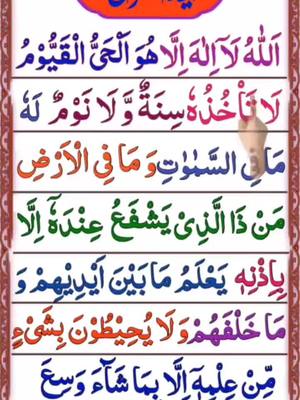 اَللّٰهُ لَاۤ اِلٰهَ اِلَّا هُوَ اَلْحَیُّ الْقَیُّوْمُ
لَا تَاْخُذُهٗ سِنَةٌ وَّ لَا نَوْمٌ لَهٗ
مَا فِی السَّمٰوٰتِ وَ مَا فِی الْاَرْضِ
مَنْ ذَا الَّذِیْ یَشْفَعُ عِنْدَهٗۤ اِلَّا
بِاِذْنِهٖ یَعْلَمُ مَا بَیْنَ اَیْدِیْهِمْ وَ
مَا خَلْفَهُمْ وَ لَا یُحِیْطُوْنَ بِشَیْءٍ
مِّنْ عِلْمِهٖۤ اِلَّا بِمَا شَآءَ وَسِعَ